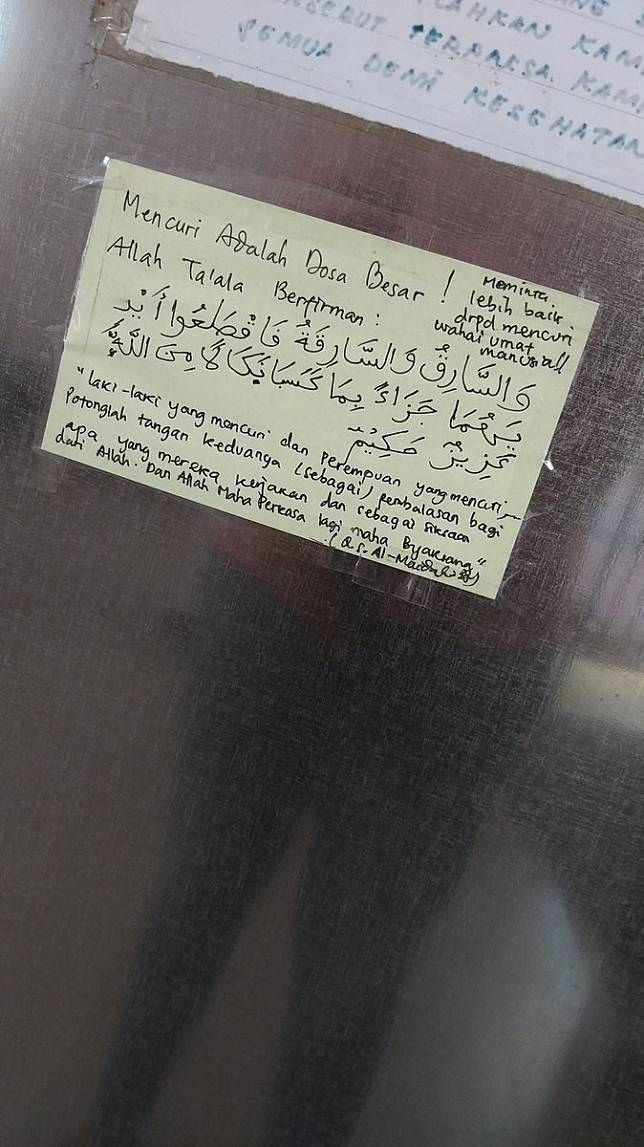 LAHKAN KAM
TERPAKSA KAM
SEMUA DEMI KESEHATAN
Mencuri Adalah Dosa Besar !
Allah Ta'ala Berfirman :
Meminta
lebih baik
drpd mencuri
wahai umat
manusia!!
وَالسَّارِقُ وَالسَّارِقَةُ فَاقْطَعُوا أَيْدِ
يَهُمَا جَزَاءً بِمَا كَسَبَا نَكَالًا مِنَ اللَّهِ
عَزِيزٌ حَكِيمٌ
"laki-laki yang mencuri dan Perempuan yang mencuri,
Potonglah tangan keduanya (sebagai) pembalasan bagi
apa yang mereka kerjakan dan sebagai siksaan
dari Allah. Dan Allah Maha Perkasa lagi maha
(Q.S. Al-Maidah: